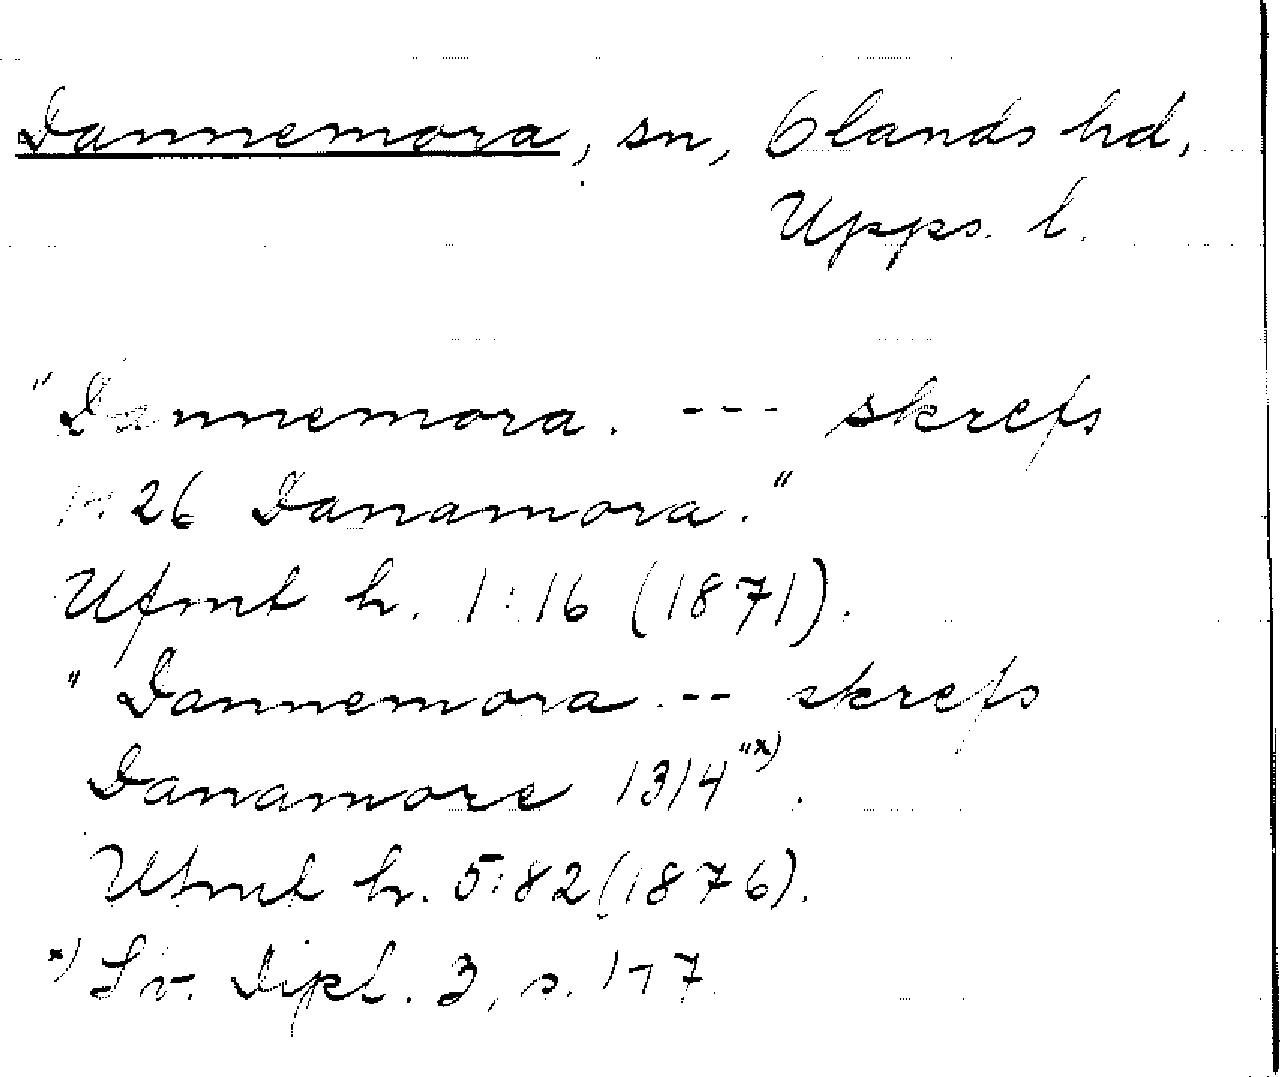 Dannemora, sn, Olands hd,
Upps. l.
"Dannemora. --- skrefs
26 Danamora."
Ufmt h. 1:16 (1871).
"Dannemora. -- skrefs
Danamore 1314"x).
Ufmt h. 5:82 (1876).
x) Sv. Dipl. 3, s.